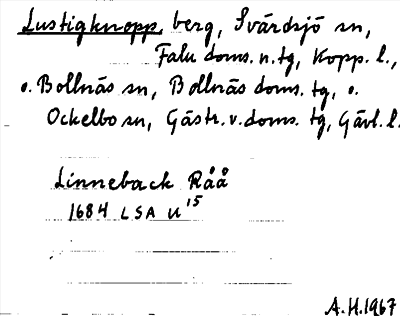 Lustigknopp, berg, Svärdsjö sn,
Falu doms. n. tg, Kopp. l.,
o. Bollnäs sn, Bollnäs doms. tg, o.
Ockelbo sn, Gästr. v. doms. tg, Gävl. l.
Linneback Råå
1684 LSA U 15
A.H. 1967